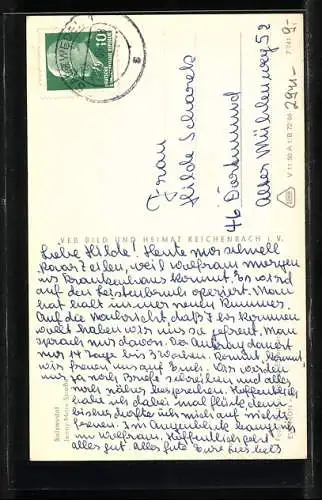 10
Frau
Hilde Scharek
46 Dortmund
Alter Mühlenweg 52
VEB BILD UND HEIMAT REICHENBACH i. V.
V 11 50 A 1/B 72/66
Liebe Hilde! Heute nur schnell
paar Zeilen, weil Wolfram morgen
ins Krankenhaus kommt. Er wird
auf den Leistenbruch operiert. Man
hat halt immer neuen Kummer.
Auf die Nachricht, daß Ihr kommen
wollt haben wir uns so gefreut. Man
sprach nur davon. Der dauert
nur 14 Tage bis 3 Wochen. kommt
freuen uns auf Euch. Wir werden
uns ja noch Briefe schreiben und alles
noch näher besprechen. Hoffentlich
habe ich dabei mal Glück, denn
bisher durfte ich mich auf nichts
freuen. Im Augenblick
um Wolfram. Hoffentlich geht
alles gut. Alles Gute Eure